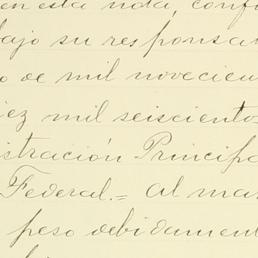 en esta nota, confi
bajo su responsa
o de mil novecien
iez mil seiscientos
istración Principa
Federal.= Al mar
peso debidament